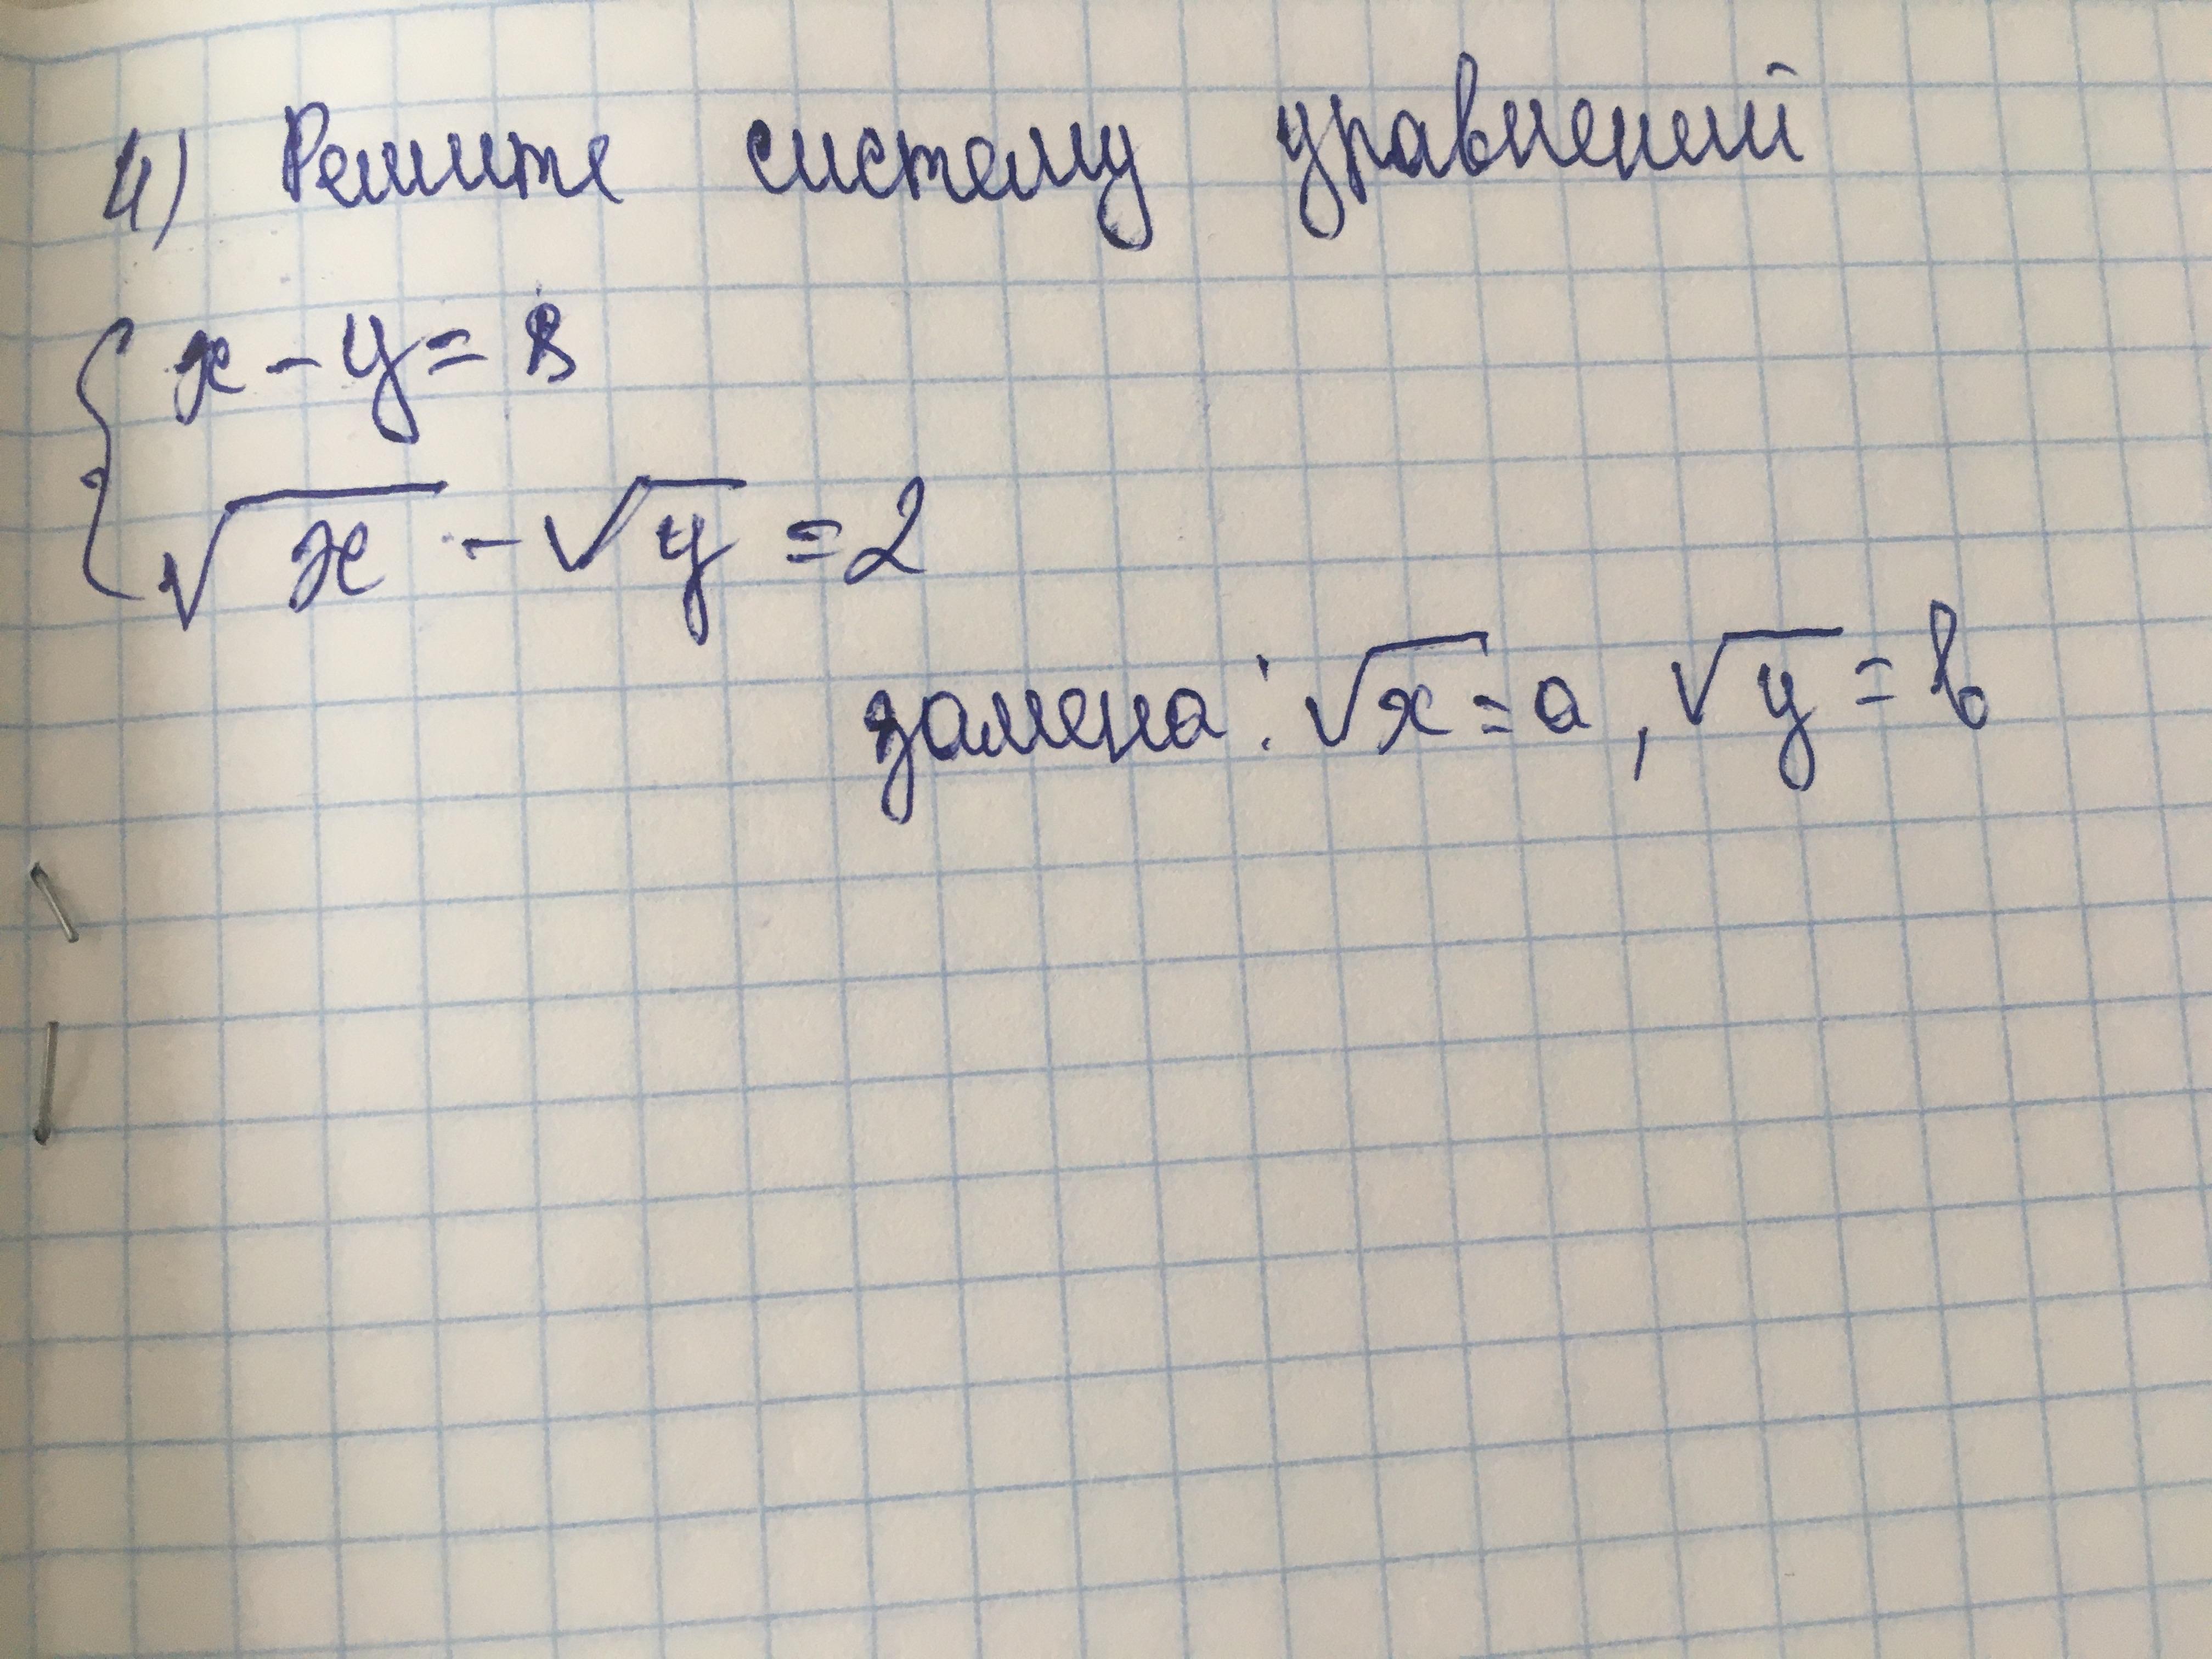 4) Решите систему уравнений
{ x - y = 8
√x - √y = 2
замена: √x = a, √y = b